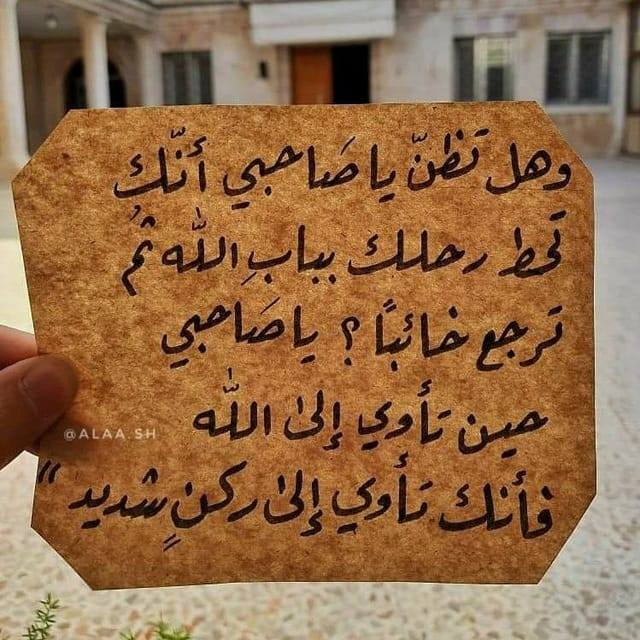 وهل تظنّ يا صَاحبي أنّكَ
تحط رحلك ببابِ الله ثُم
ترجع خائباً ؟ يا صَاحبي
حين تأوي إلىٰ الله
@ALAA.SH
فأنك تأوي إلىٰ ركنٍ شديد "